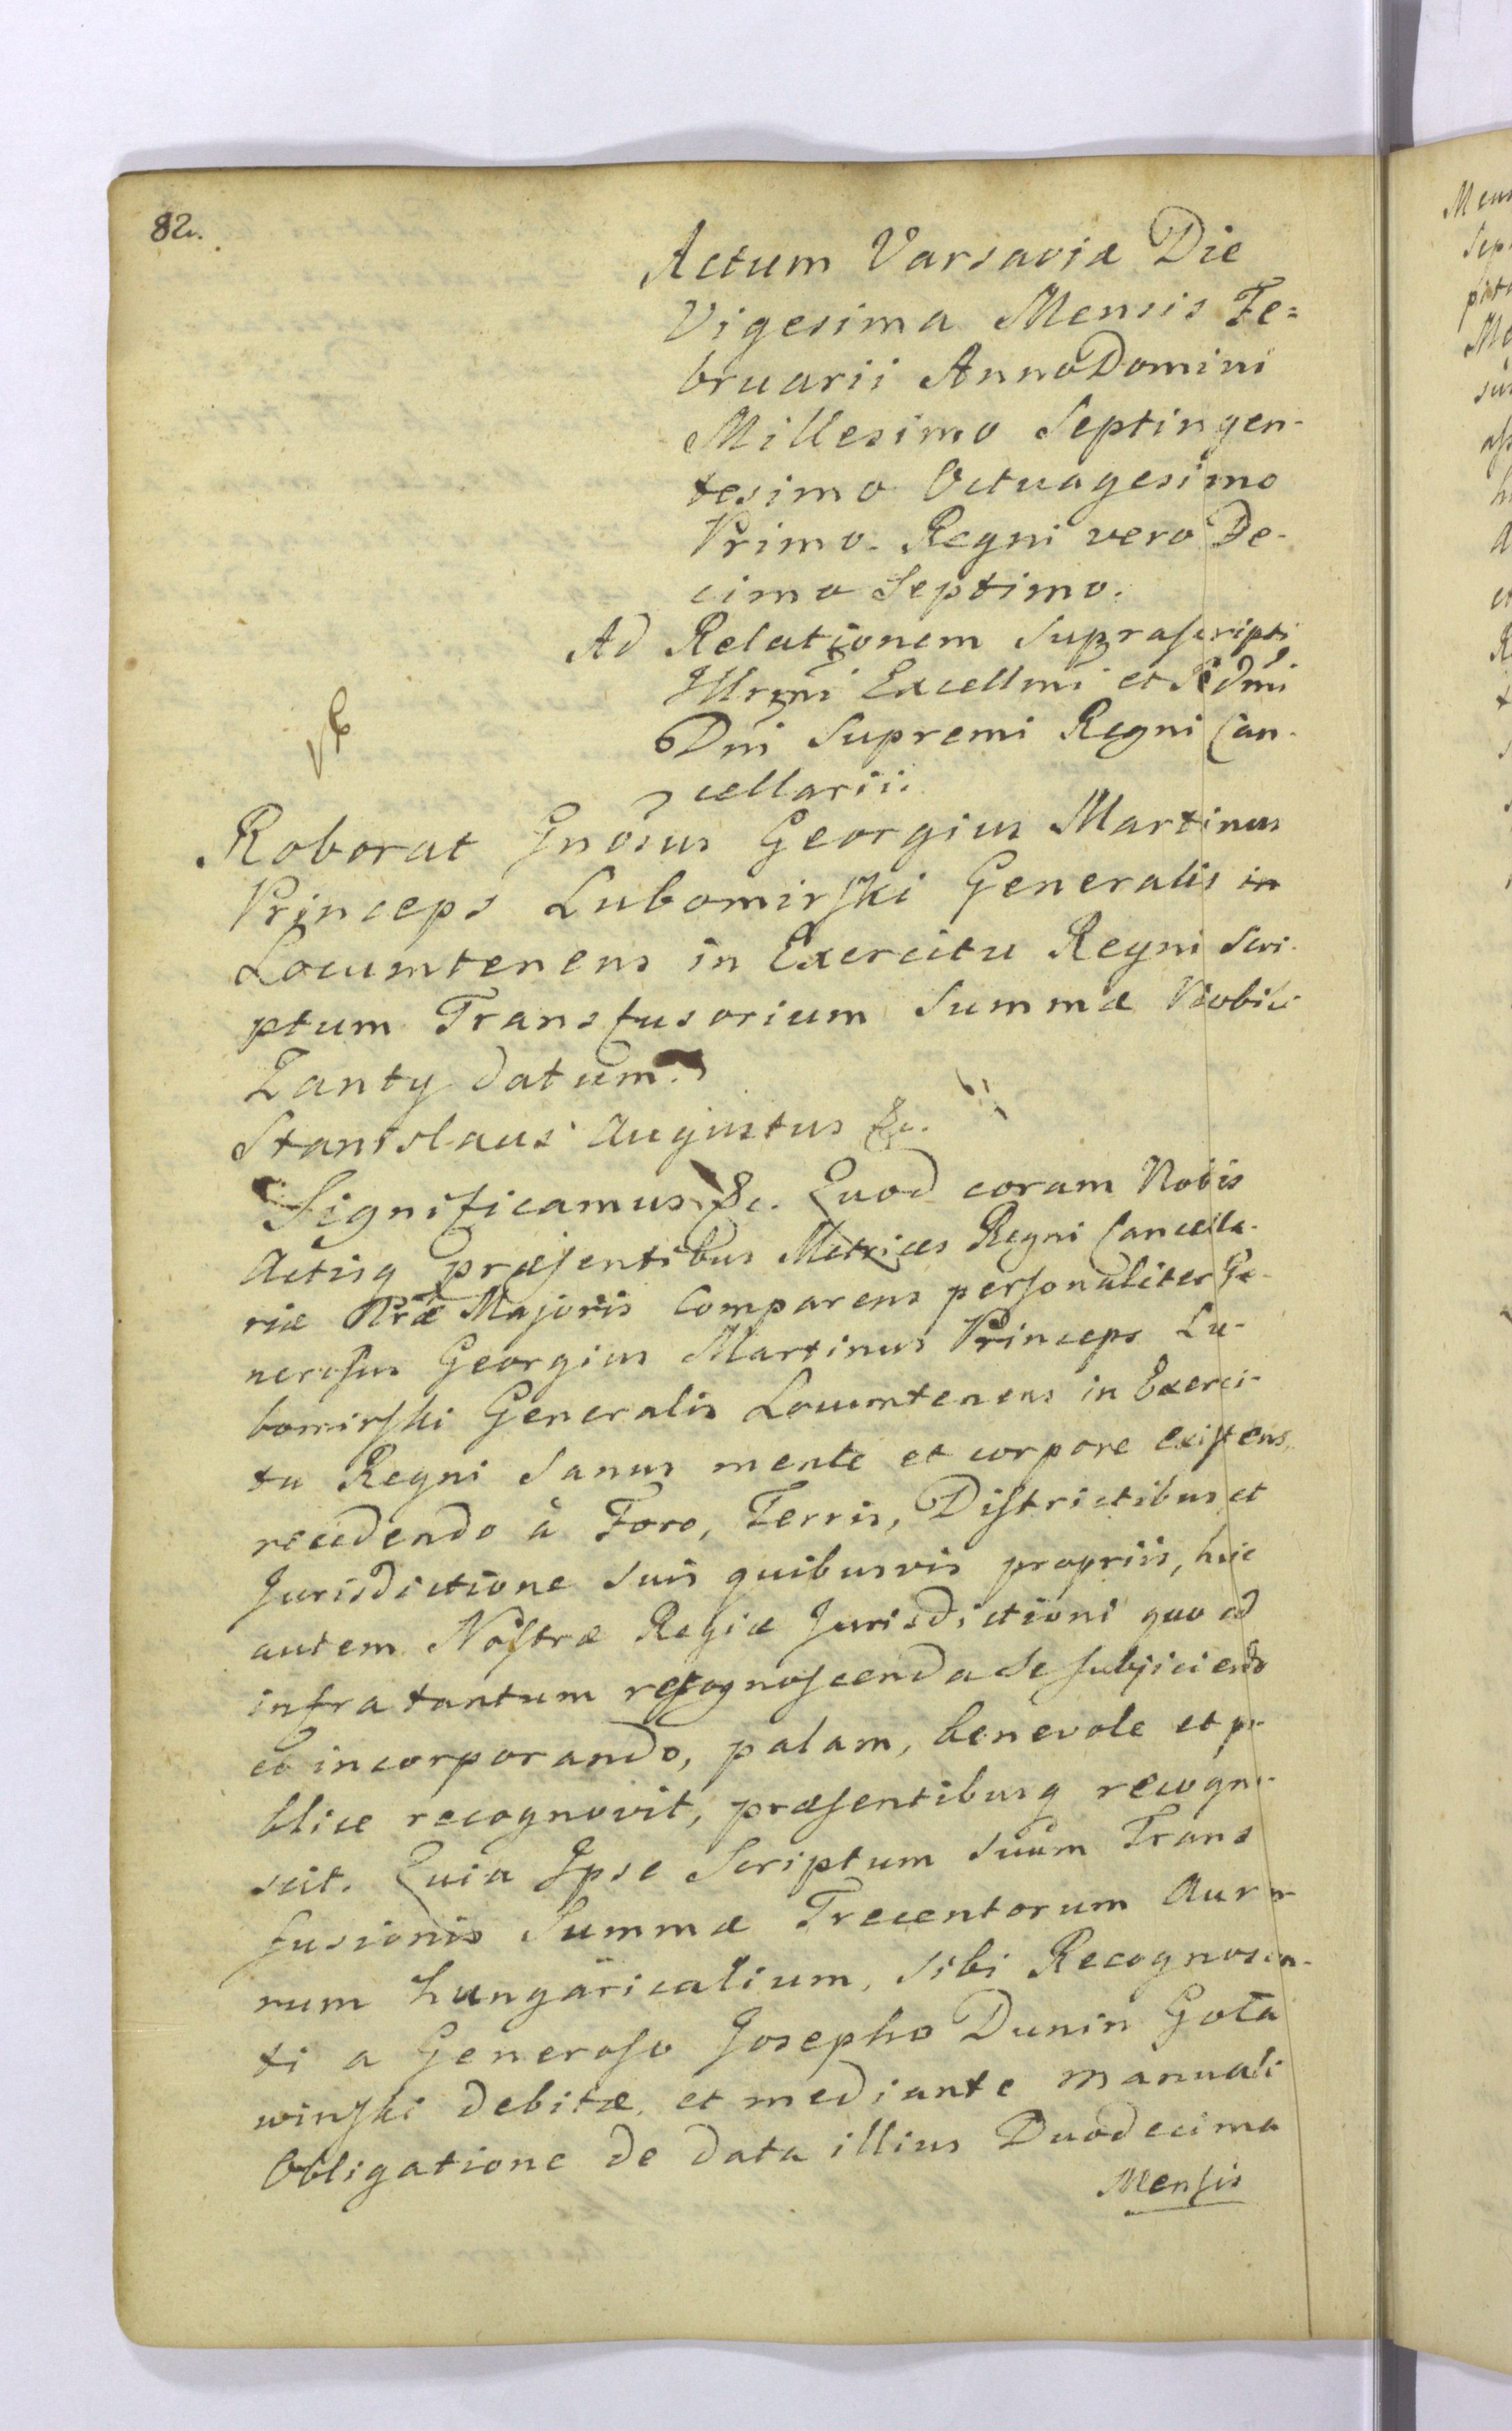 82.
Actum Varsaviæ Die
Vigesima Mensis Fe=
bruarii Anno Domini
Millesimo Septingen-
tesimo Octuagesimo
Primo. Regni vero De-
cimo Septimo.
Ad Relationem Suprascripti
Illrmi Excellmi et Rdmi
Dni Supremi Regni Can-
cellarii.
Roborat Gnosus Georgius Martinus
Princeps Lubomirski Generalis
Locumtenens in Exercitu Regni Scri-
ptum Transfusorium Summæ Nobili
Zanty datum.
Stanislaus Augustus &c.
Significamus &c. Quod coram Nobis
Actisq præsentibus Metrices Regni Cancella-
riæ Nræ Majoris Comparens personaliter Ge-
nerosus Georgius Martinus Princeps Lu-
bomirski Generalis Locumtenens in Exerci-
tu Regni Sanus mente et corpore existens,
recedendo à Foro, Terris, Districtibus et
Jurisdictione suis quibusvis propriis, huic
autem Nostræ Regiæ Jurisdictioni quo ad
infra tantum recognoscenda se subjiciendo
et incorporando, palam, benevole et pu-
blice recognovit, præsentibusq recogno-
scit. Quia Ipse Scriptum suum Trans
fusionis Summæ Trecentorum Aureo-
rum hungaricalium, sibi Recognoscen-
ti a Generoso Josepho Dunin Gola
winski debitæ, et mediante manuali
Obligatione de data illius Duodecima
Mensis